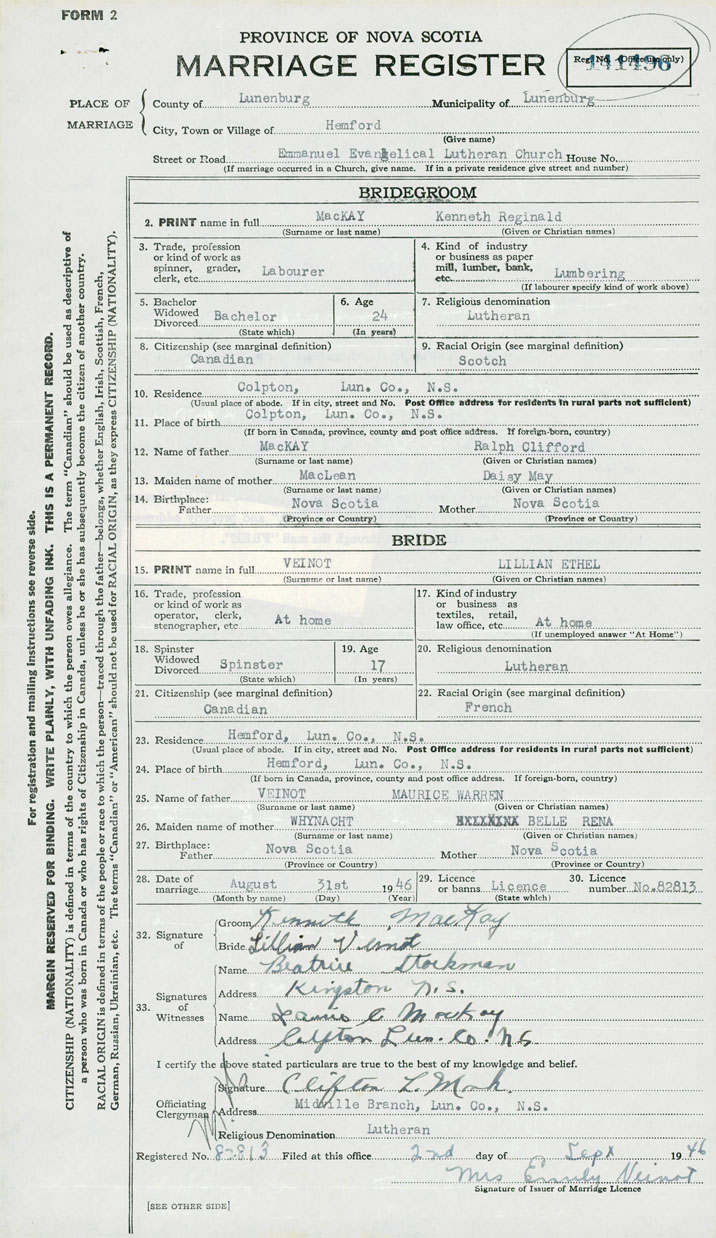 FORM 2
PROVINCE OF NOVA SCOTIA
MARRIAGE REGISTER
Reg. No. (Office use only)
141496
PLACE OF MARRIAGE
County of Lunenburg Municipality of Lunenburg
City, Town or Village of Hemford
(Give name)
Street or Road Emmanuel Evangelical Lutheran Church House No.
(If marriage occurred in a Church, give name. If in a private residence give street and number)
BRIDEGROOM
2. PRINT name in full MacKAY Kenneth Reginald
(Surname or last name) (Given or Christian names)
3. Trade, profession or kind of work as spinner, grader, clerk, etc. Labourer
4. Kind of industry or business as paper mill, lumber, bank, etc. Lumbering
(If labourer specify kind of work above)
5. Bachelor Widowed Divorced Bachelor
(State which)
6. Age 24
(In years)
7. Religious denomination
Lutheran
8. Citizenship (see marginal definition)
Canadian
9. Racial Origin (see marginal definition)
Scotch
10. Residence Colpton, Lun. Co., N.S.
(Usual place of abode. If in city, street and No. Post Office address for residents in rural parts not sufficient)
11. Place of birth Colpton, Lun. Co., N.S.
(If born in Canada, province, county and post office address. If foreign-born, country)
12. Name of father MacKAY Ralph Clifford
(Surname or last name) (Given or Christian names)
13. Maiden name of mother MacLean Daisy May
(Surname or last name) (Given or Christian names)
14. Birthplace: Father Nova Scotia Mother Nova Scotia
(Province or Country) (Province or Country)
BRIDE
15. PRINT name in full VEINOT LILLIAN ETHEL
(Surname or last name) (Given or Christian names)
16. Trade, profession or kind of work as operator, clerk, stenographer, etc At home
17. Kind of industry or business as textiles, retail, law office, etc. At home
(If unemployed answer "At Home")
18. Spinster Widowed Divorced Spinster
(State which)
19. Age 17
(In years)
20. Religious denomination
Lutheran
21. Citizenship (see marginal definition)
Canadian
22. Racial Origin (see marginal definition)
French
23. Residence Hemford, Lun. Co., N.S.
(Usual place of abode. If in city, street and No. Post Office address for residents in rural parts not sufficient)
24. Place of birth Hemford, Lun. Co., N.S.
(If born in Canada, province, county and post office address. If foreign-born, country)
25. Name of father VEINOT MAURICE WARREN
(Surname or last name) (Given or Christian names)
26. Maiden name of mother WHYNACHT BELLE RENA
(Surname or last name) (Given or Christian names)
27. Birthplace: Father Nova Scotia Mother Nova Scotia
(Province or Country) (Province or Country)
28. Date of marriage August 31st 1946
(Month by name) (Day) (Year)
29. Licence or banns Licence
(State which)
30. Licence number No.82813
32. Signature of
Groom Kenneth MacKay
Bride Lillian Veinot
33. Signatures of Witnesses
Name Beatrice Stockman
Address Kingston N.S.
Name C MacKay
Address Colpton Lun. Co. N.S.
I certify the above stated particulars are true to the best of my knowledge and belief.
Officiating Clergyman
Signature Clifton L. Monk.
Address Midville Branch, Lun. Co., N.S.
Religious Denomination Lutheran
Registered No. 82813 Filed at this office 2nd day of Sept 1946
Mrs Emily Veinot
Signature of Issuer of Marriage Licence
[SEE OTHER SIDE]
For registration and mailing instructions see reverse side.
MARGIN RESERVED FOR BINDING. WRITE PLAINLY, WITH UNFADING INK. THIS IS A PERMANENT RECORD.
CITIZENSHIP (NATIONALITY) is defined in terms of the country to which the person owes allegiance. The term "Canadian" should be used as descriptive of
a person who was born in Canada or who has rights of Citizenship in Canada, unless he or she has subsequently become the citizen of another country.
RACIAL ORIGIN is defined in terms of the people or race to which the person—traced through the father—belongs, whether English, Irish, Scottish, French,
German, Russian, Ukrainian, etc. The terms "Canadian" or "American" should not be used for RACIAL ORIGIN, as they express CITIZENSHIP (NATIONALITY).